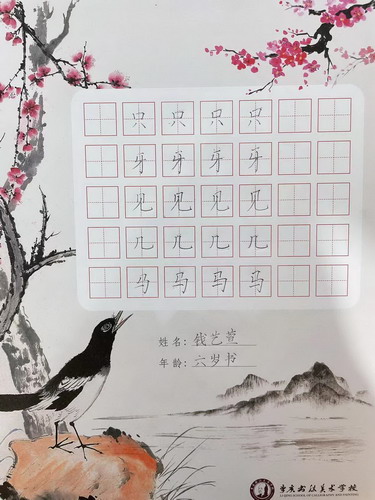 只只只只
牙牙牙牙
见见见见
几几几几
马马马马
姓名：钱艺萱
年龄：六岁书
重庆书法美术学校